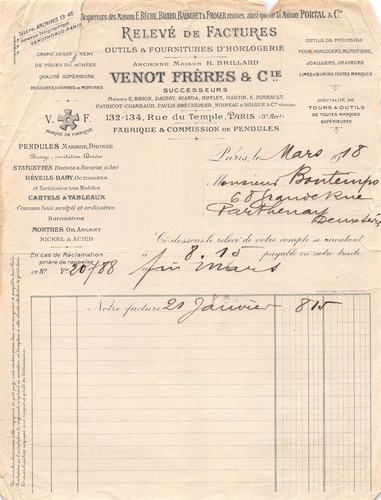 Acquéreurs des Maisons E. BÊCHE, BRARD, BAINCHET & FROGER réunies, ainsi que de la Maison PORTAL & Cie
Téléph. ARCHIVES 13-40
Adresse Télégraphique
VENOTHORLO-PARIS
RELEVÉ DE FACTURES
OUTILS & FOURNITURES D'HORLOGERIE
ANCIENNE MAISON H. BRILLARD
VENOT FRÈRES & CIE
SUCCESSEURS
132-134, Rue du Temple, PARIS (3e Arrt)
FABRIQUE & COMMISSION DE PENDULES
GRAND ASSORTIMENT
DE PIÈCES DÉTACHÉES
QUALITÉ SUPÉRIEURE
RESSORTS & VERRES DE MONTRES
V. F.
MARQUE DE FABRIQUE
OUTILS DE PRÉCISION
POUR HORLOGERS, BIJOUTIERS,
JOAILLIERS, GRAVEURS
LIMES & BURINS TOUTES MARQUES
SPÉCIALITÉ DE
TOURS & OUTILS
DE TOUTES MARQUES
SUPÉRIEURES
PENDULES MARBRE, BRONZE
Bronze, imitation, Dorées
STATUETTES BRONZE & BRONZE D'ART
RÉVEILS BABY, OCTOGONES
et Fantaisies tous Modèles
CARTELS & TABLEAUX
Coucous bois sculpté et ordinaires
Baromètres
MONTRES OR, ARGENT
NICKEL & ACIER
En cas de Réclamation
prière de rappeler
ce No Fo 20708
Paris, le Mars 1918
Monsieur Bontemps
68 Grande Rue
Parthenay
Deux Sèvres
Ci-dessous le relevé de votre compte se montant
à 8.15 payable en notre traite
fin mars
Notre facture 21 Janvier 815